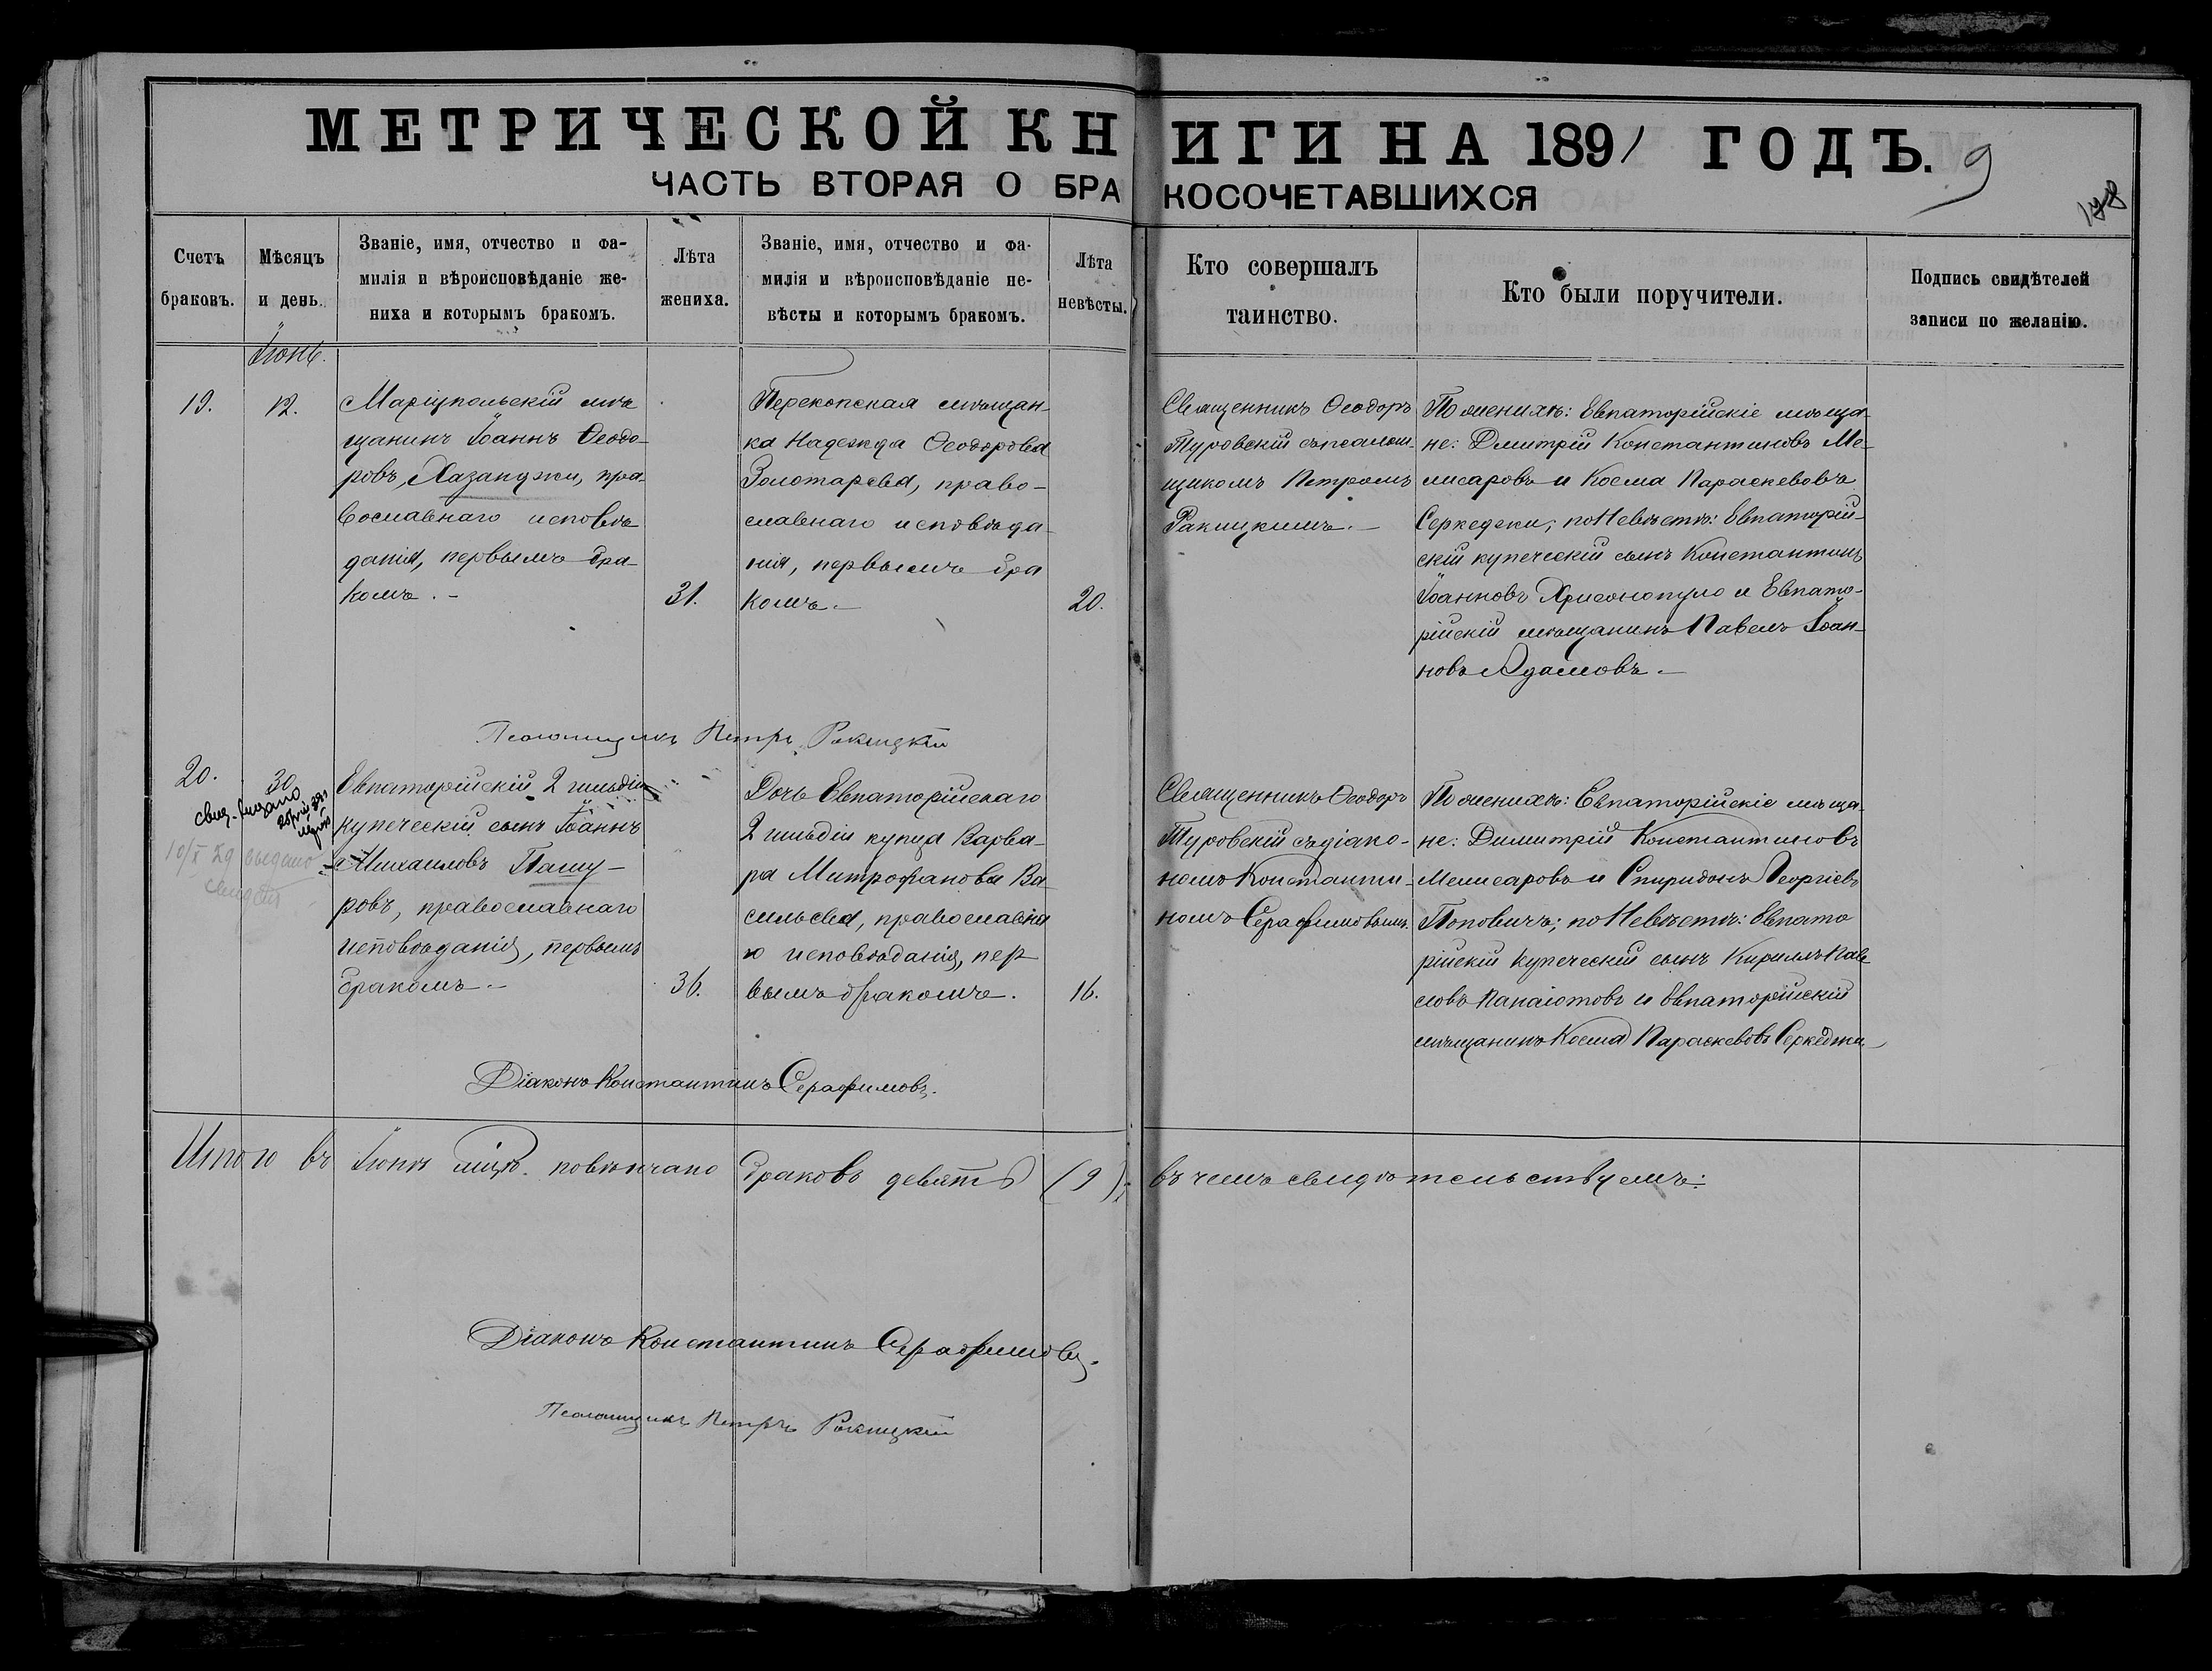 МЕТРИЧЕСКОЙ КНИГИ НА 1891 ГОДЪ.
9
178
ЧАСТЬ ВТОРАЯ О БРАКОСОЧЕТАВШИХСЯ
Счетъ
браковъ.
Мѣсяцъ
и день.
Званіе, имя, отчество и фа-
милія и вѣроисповѣданіе же-
ниха и которымъ бракомъ.
Лѣта
жениха.
Званіе, имя, отчество и фа-
милія и вѣроисповѣданіе не-
вѣсты и которымъ бракомъ.
Лѣта
невѣсты.
Кто совершалъ
таинство.
Кто были поручители.
Подпись свидѣтелей
записи по желанію.
Іюнь.
19.
12.
Маріупольскій мѣ
щанинъ Іоаннъ Ѳеодо-
ровъ Хазанджи, пра-
вославнаго исповѣ
данія, первымъ бра-
комъ.-
31.
Перекопская мѣщан-
ка Надежда Ѳеодорова
Золотарева, право-
славнаго исповѣда-
нія, первымъ бра
комъ.-
20.
Священникъ Ѳеодоръ
Туровскій съ псалом-
щикомъ Петромъ
Ракицкимъ.-
По женихѣ: Евпаторійскіе мѣща-
не: Дмитрій Константиновъ Ме-
лисаровъ и Косма Параскевовъ
Серкеджи; по Невѣстѣ: Евпаторій-
скій купеческій сынъ Константинъ
Іоанновъ Хрисонопуло и Евпато-
рійскій мѣщанинъ Павелъ Іоан-
новъ Адамовъ.-
Псаломщикъ Петръ Ракицкій
20.
30.
свид. выдано
10/X 29 выдано
свидет
Евпаторійскій 2 гильдіи
купеческій сынъ Іоаннъ
Михаиловъ Пашу-
ровъ, православнаго
исповѣданія, первымъ
бракомъ.-
36.
Дочь Евпаторійскаго
2 гильдіи купца Варва-
ра Митрофанова Ва-
сильева, православна
го исповѣданія, пер
вымъ бракомъ.
16.
Священникъ Ѳеодоръ
Туровскій съ діако-
номъ Константи-
номъ Серафимовымъ.
По женихѣ: Евпаторійскіе мѣща-
не: Димитрій Константиновъ
Мелисаровъ и Спиридонъ Георгіевъ
Поповичъ; по Невѣстѣ: Евпато
рійскій купеческій сынъ Кириллъ Пав-
ловъ Панаіотовъ и Евпаторійскій
мѣщанинъ Косма Параскевовъ Серкеджи
Діаконъ Константинъ Серафимовъ.
Итого въ Іюнѣ мцѣ. повѣнчано браковъ девять (9); въ чемъ свидѣтельствуемъ:
Діаконъ Константинъ Серафимовъ.
Псаломщикъ Петръ Ракицкій